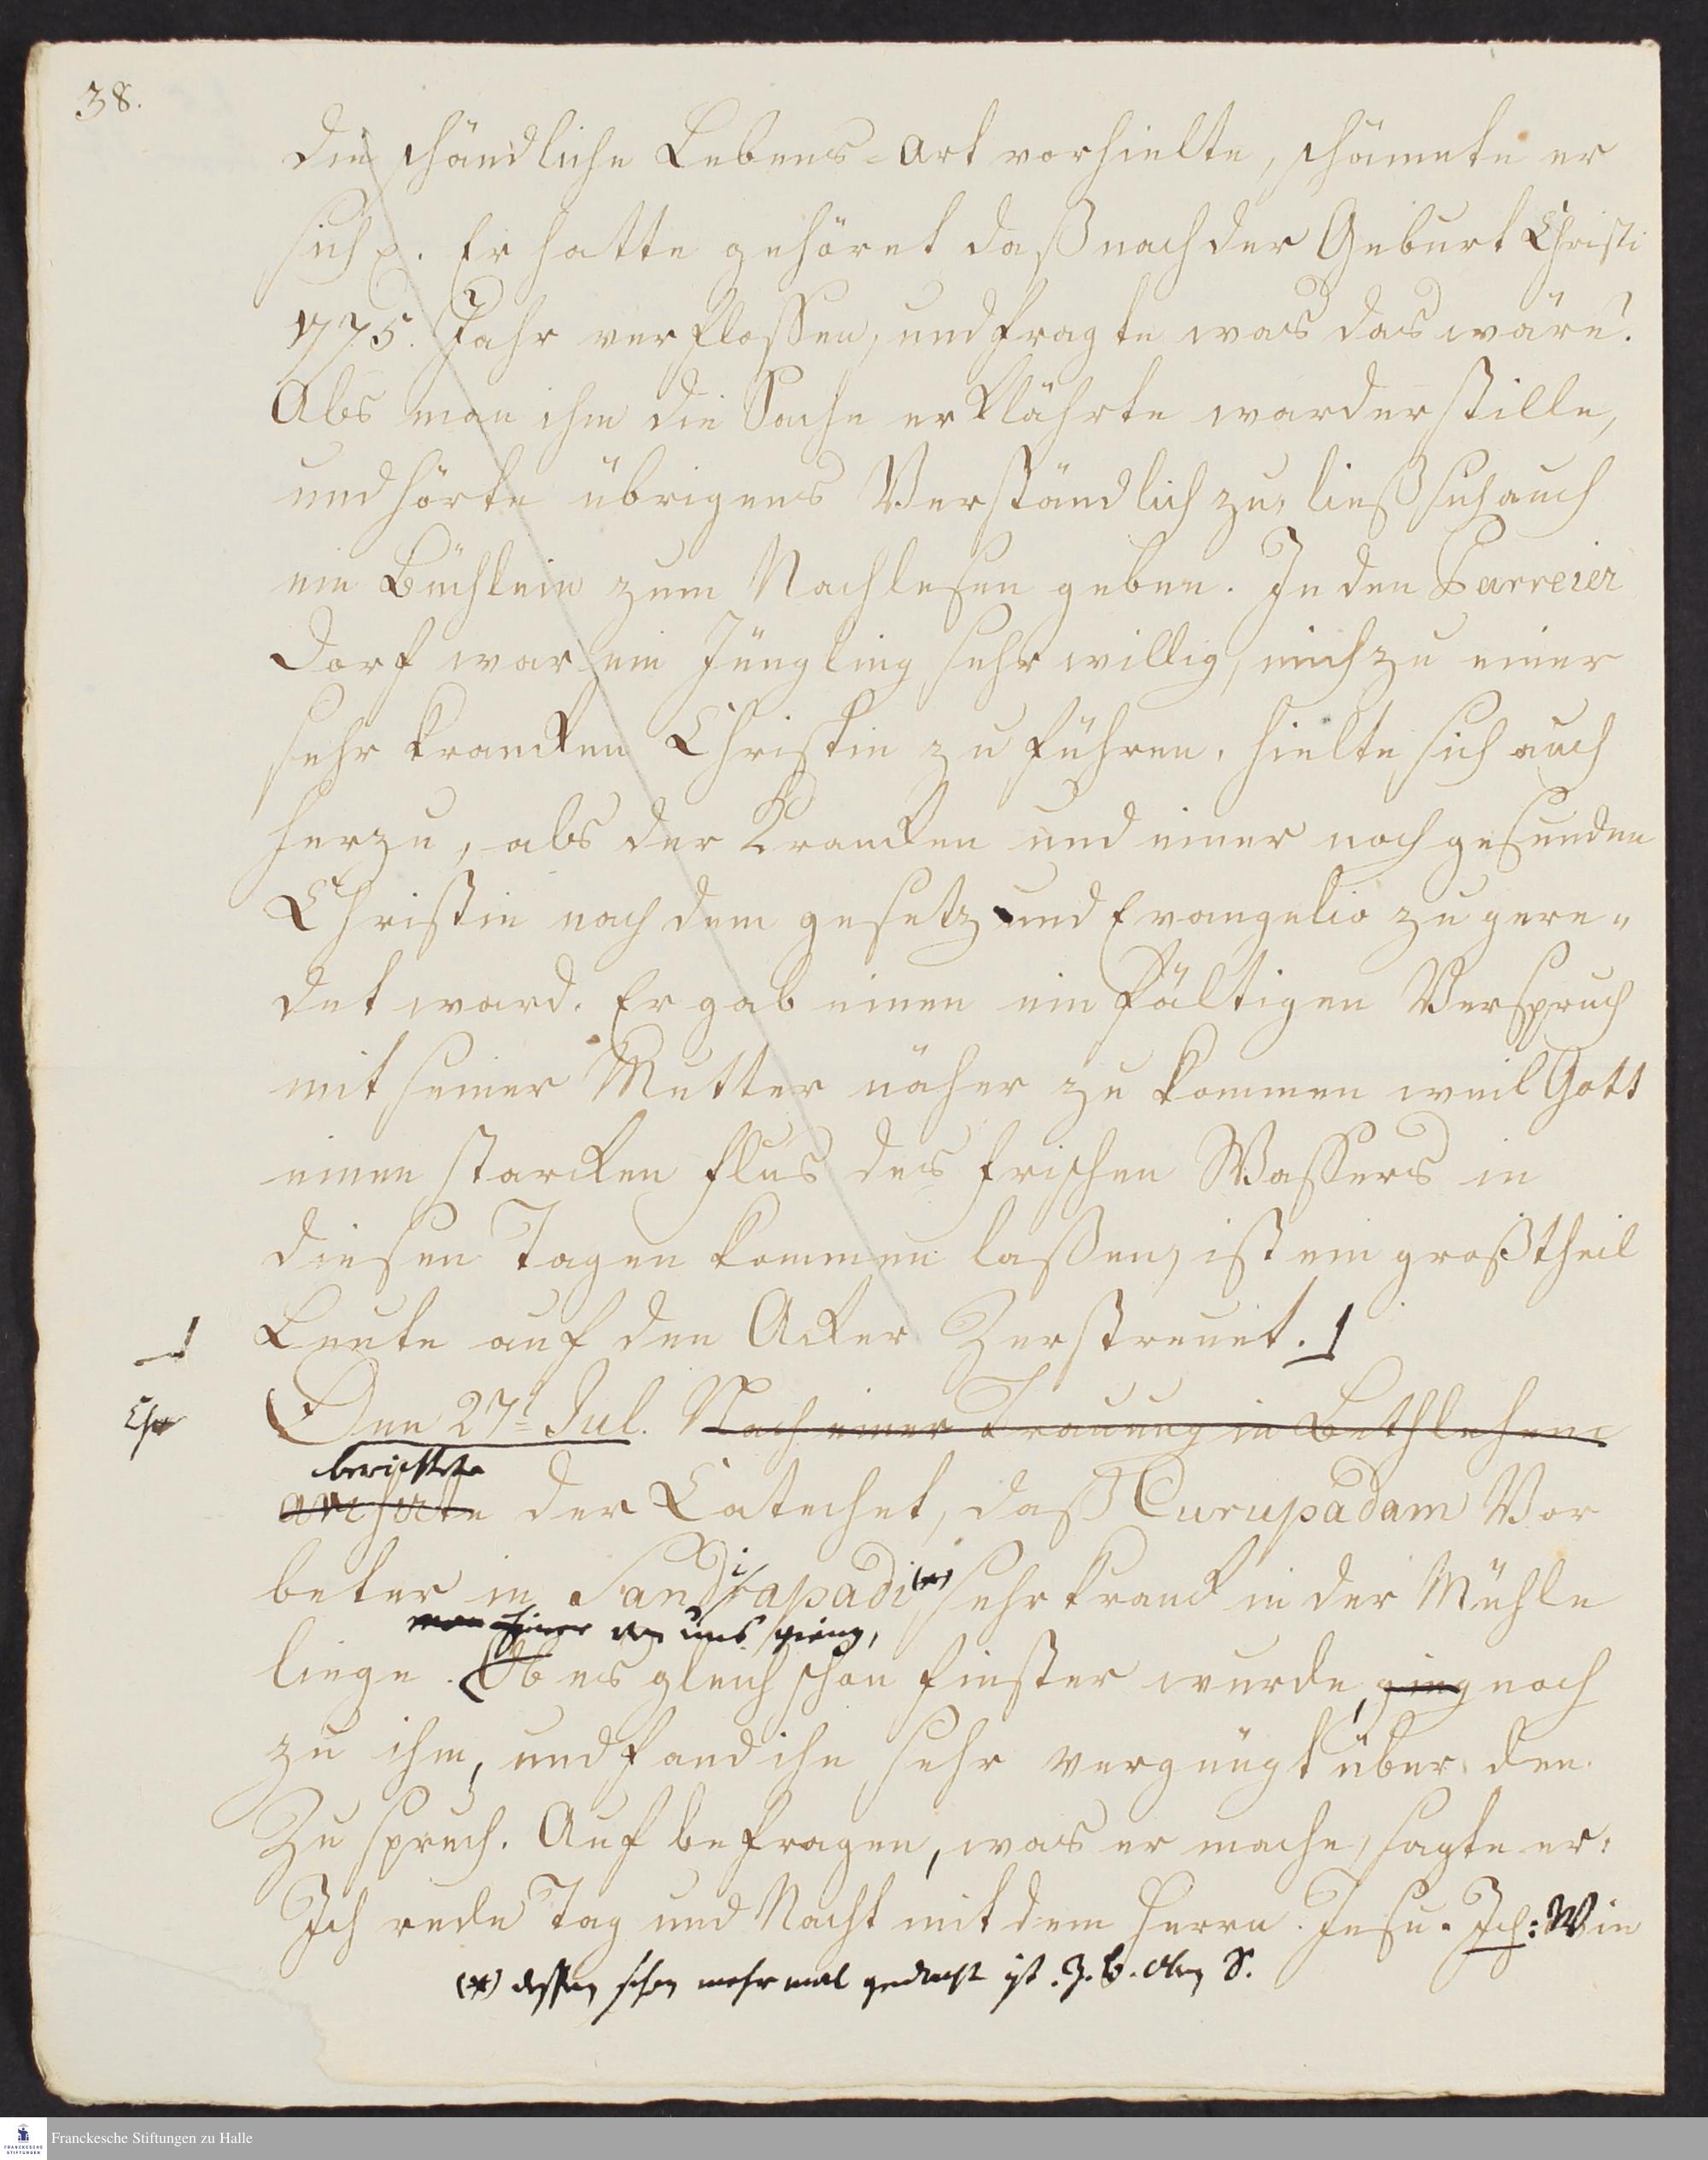 38.
die schändliche Lebens-Art vorhielte, schämete er
sich p. Er hatte gehöret daß nach der Geburt Christi
1775. Jahr verfloßen, und fragte was das wäre?
Als man ihm die Sache erklährte ward er stille,
und hörte übrigens Verständlich zu, ließ sich auch
ein Büchlein zum Nachlesen geben. In den Parreier
Dorf war ein Jüngling sehr willig, mich zu einer
sehr krancken Christin zu führen, hielte sich auch
herzu, als der Krancken und einer noch gesunden
Christin nach dem gesetz und Evangelio zu gere„
det ward. Er gab einen einfältigen Verspruch
mit seiner Mutter näher zu kommen weil Gott
einen starcken flus des frischen Waßers in
diesen Tagen kommen laßen, ist ein großtheil
Leute auf den Acker Zerstreuet.
Den 27t Jul. Nach einer Trauung in Bethlehem
berichtete
der Catechet, daß Curupádam Vor
beter in Sandirapadi (*) sehr kranck in der Mühle
einer von uns gieng,
liege. Ob es gleich schon finster wurde, ging noch
zu ihm, und fand ihn sehr vergnügt über den
Zuspruch. Auf befragen, was er mache, sagte er:
Ich rede Tag und Nacht mit dem Herrn Jesu. Ich: Wie
(*) dessen schon mehrmal gedacht ist. Z. B. oben S.
Franckesche Stiftungen zu Halle